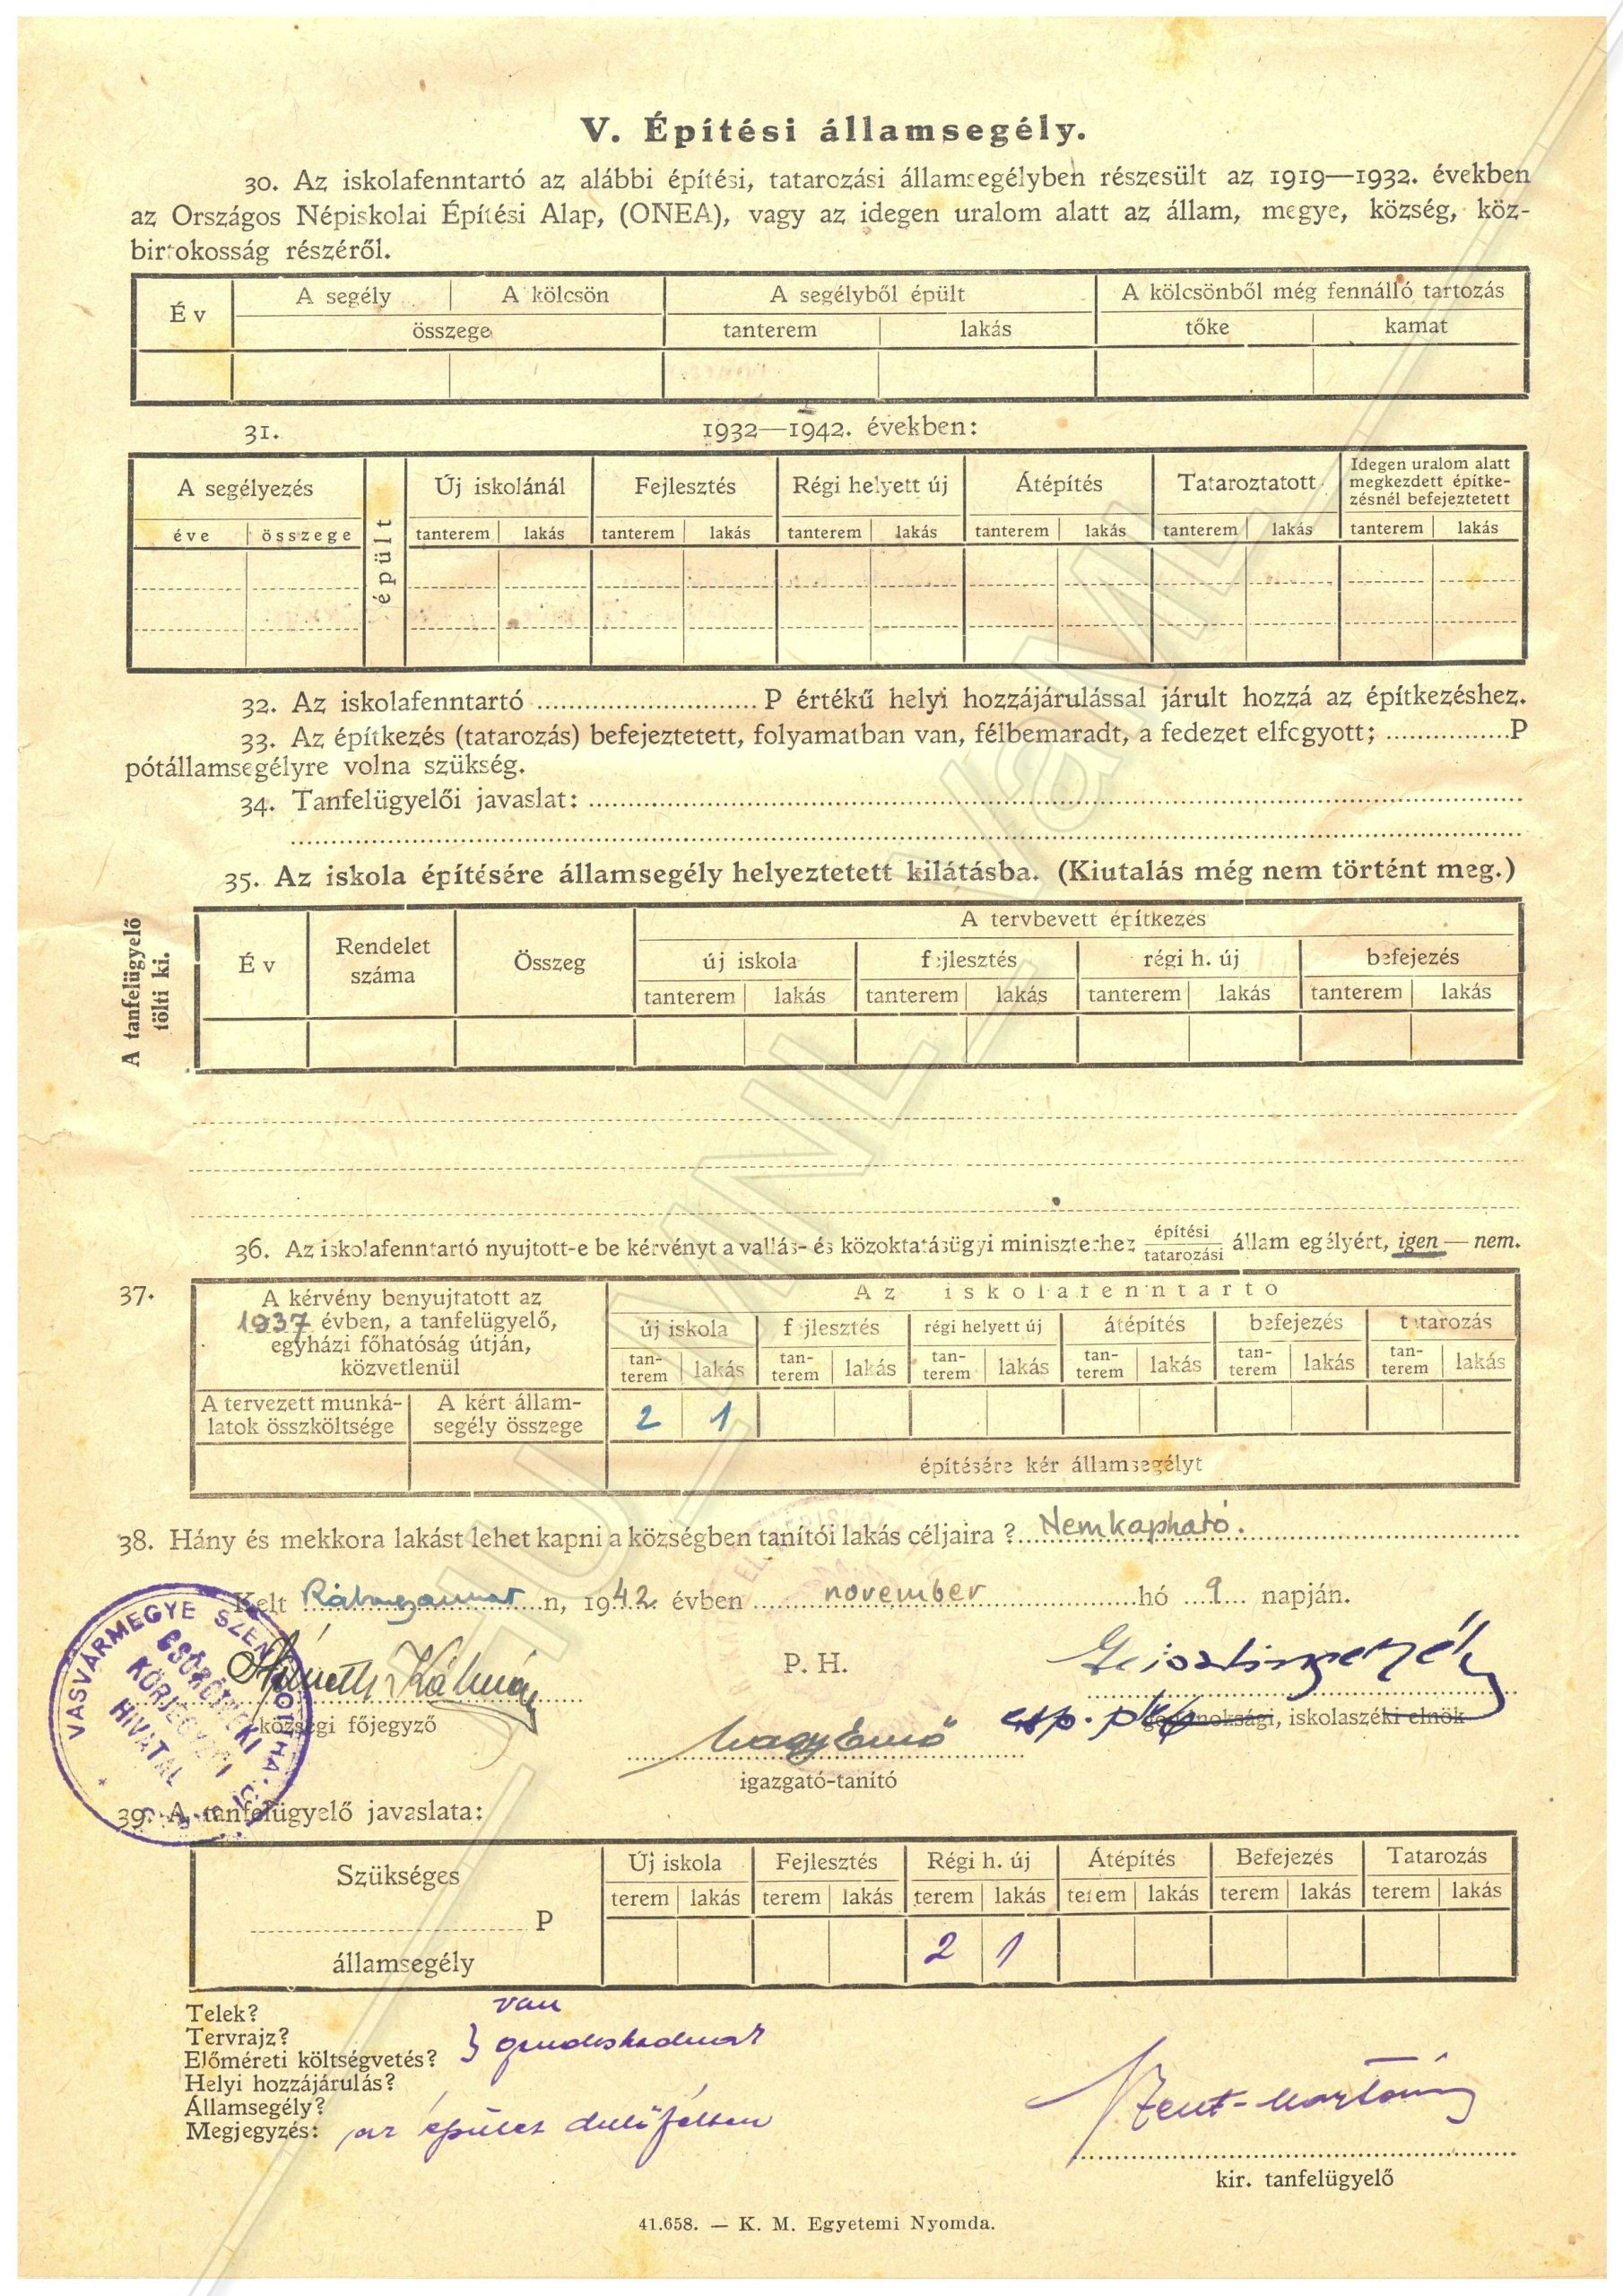 V. Építési államsegély.
30. Az iskolafenntartó az alábbi építési, tatarozási államsegélyben részesült az 1919—1932. években
az Országos Népiskolai Építési Alap, (ONEA), vagy az idegen uralom alatt az állam, megye, község, köz-
birtokosság részéről.
Év A segély A kölcsön A segélyből épült A kölcsönből még fennálló tartozás
összege tanterem lakás tőke kamat
31. 1932—1942. években:
A segélyezés épült Új iskolánál Fejlesztés Régi helyett új Átépítés Tataroztatott Idegen uralom alatt
megkezdett építke-
zésnél befejeztetett
éve összege tanterem lakás tanterem lakás tanterem lakás tanterem lakás tanterem lakás tanterem lakás
32. Az iskolafenntartó P értékű helyi hozzájárulással járult hozzá az építkezéshez.
33. Az építkezés (tatarozás) befejeztetett, folyamatban van, félbemaradt, a fedezet elfogyott; P
pótállamsegélyre volna szükség.
34. Tanfelügyelői javaslat:
35. Az iskola építésére államsegély helyeztetett kilátásba. (Kiutalás még nem történt meg.)
A tanfelügyelő
tölti ki.
A tervbevett építkezés
Év Rendelet száma Összeg új iskola fejlesztés régi h. új befejezés
tanterem lakás tanterem lakás tanterem lakás tanterem lakás
36. Az iskolafenntartó nyujtott-e be kérvényt a vallás- és közoktatásügyi miniszterhez építési tatarozási államsegélyért, igen — nem.
37. A kérvény benyujtatott az
1937 évben, a tanfelügyelő,
egyházi főhatóság útján,
közvetlenül
Az iskolafenntartó
új iskola fejlesztés régi helyett új átépítés befejezés tatarozás
tan-terem lakás tan-terem lakás tan-terem lakás tan-terem lakás tan-terem lakás tan-terem lakás
A tervezett munká-
latok összköltsége
A kért állam-
segély összege
2 1
építésére kér államsegélyt
38. Hány és mekkora lakást lehet kapni a községben tanítói lakás céljaira? Nem kapható.
Kelt n, 1942 évben november hó 9 napján.
VASVÁRMEGYE
CSÖRÖTNEKI
KÖRJEGYZŐI
HIVATAL
Németh Kálmán
községi főjegyző
P. H.
esp. plb
gondnoksági, iskolaszéki elnök
Nagy Ernő
igazgató-tanító
39. A tanfelügyelő javaslata:
Szükséges
P
államsegély
Új iskola Fejlesztés Régi h. új Átépítés Befejezés Tatarozás
terem lakás terem lakás terem lakás terem lakás terem lakás terem lakás
2 1
Telek? van
Tervrajz?
Előméreti költségvetés? gondoskodnak
Helyi hozzájárulás?
Államsegély?
Megjegyzés: az épület dülőfélben
kir. tanfelügyelő
41.658. — K. M. Egyetemi Nyomda.
HU_MNL_VaML